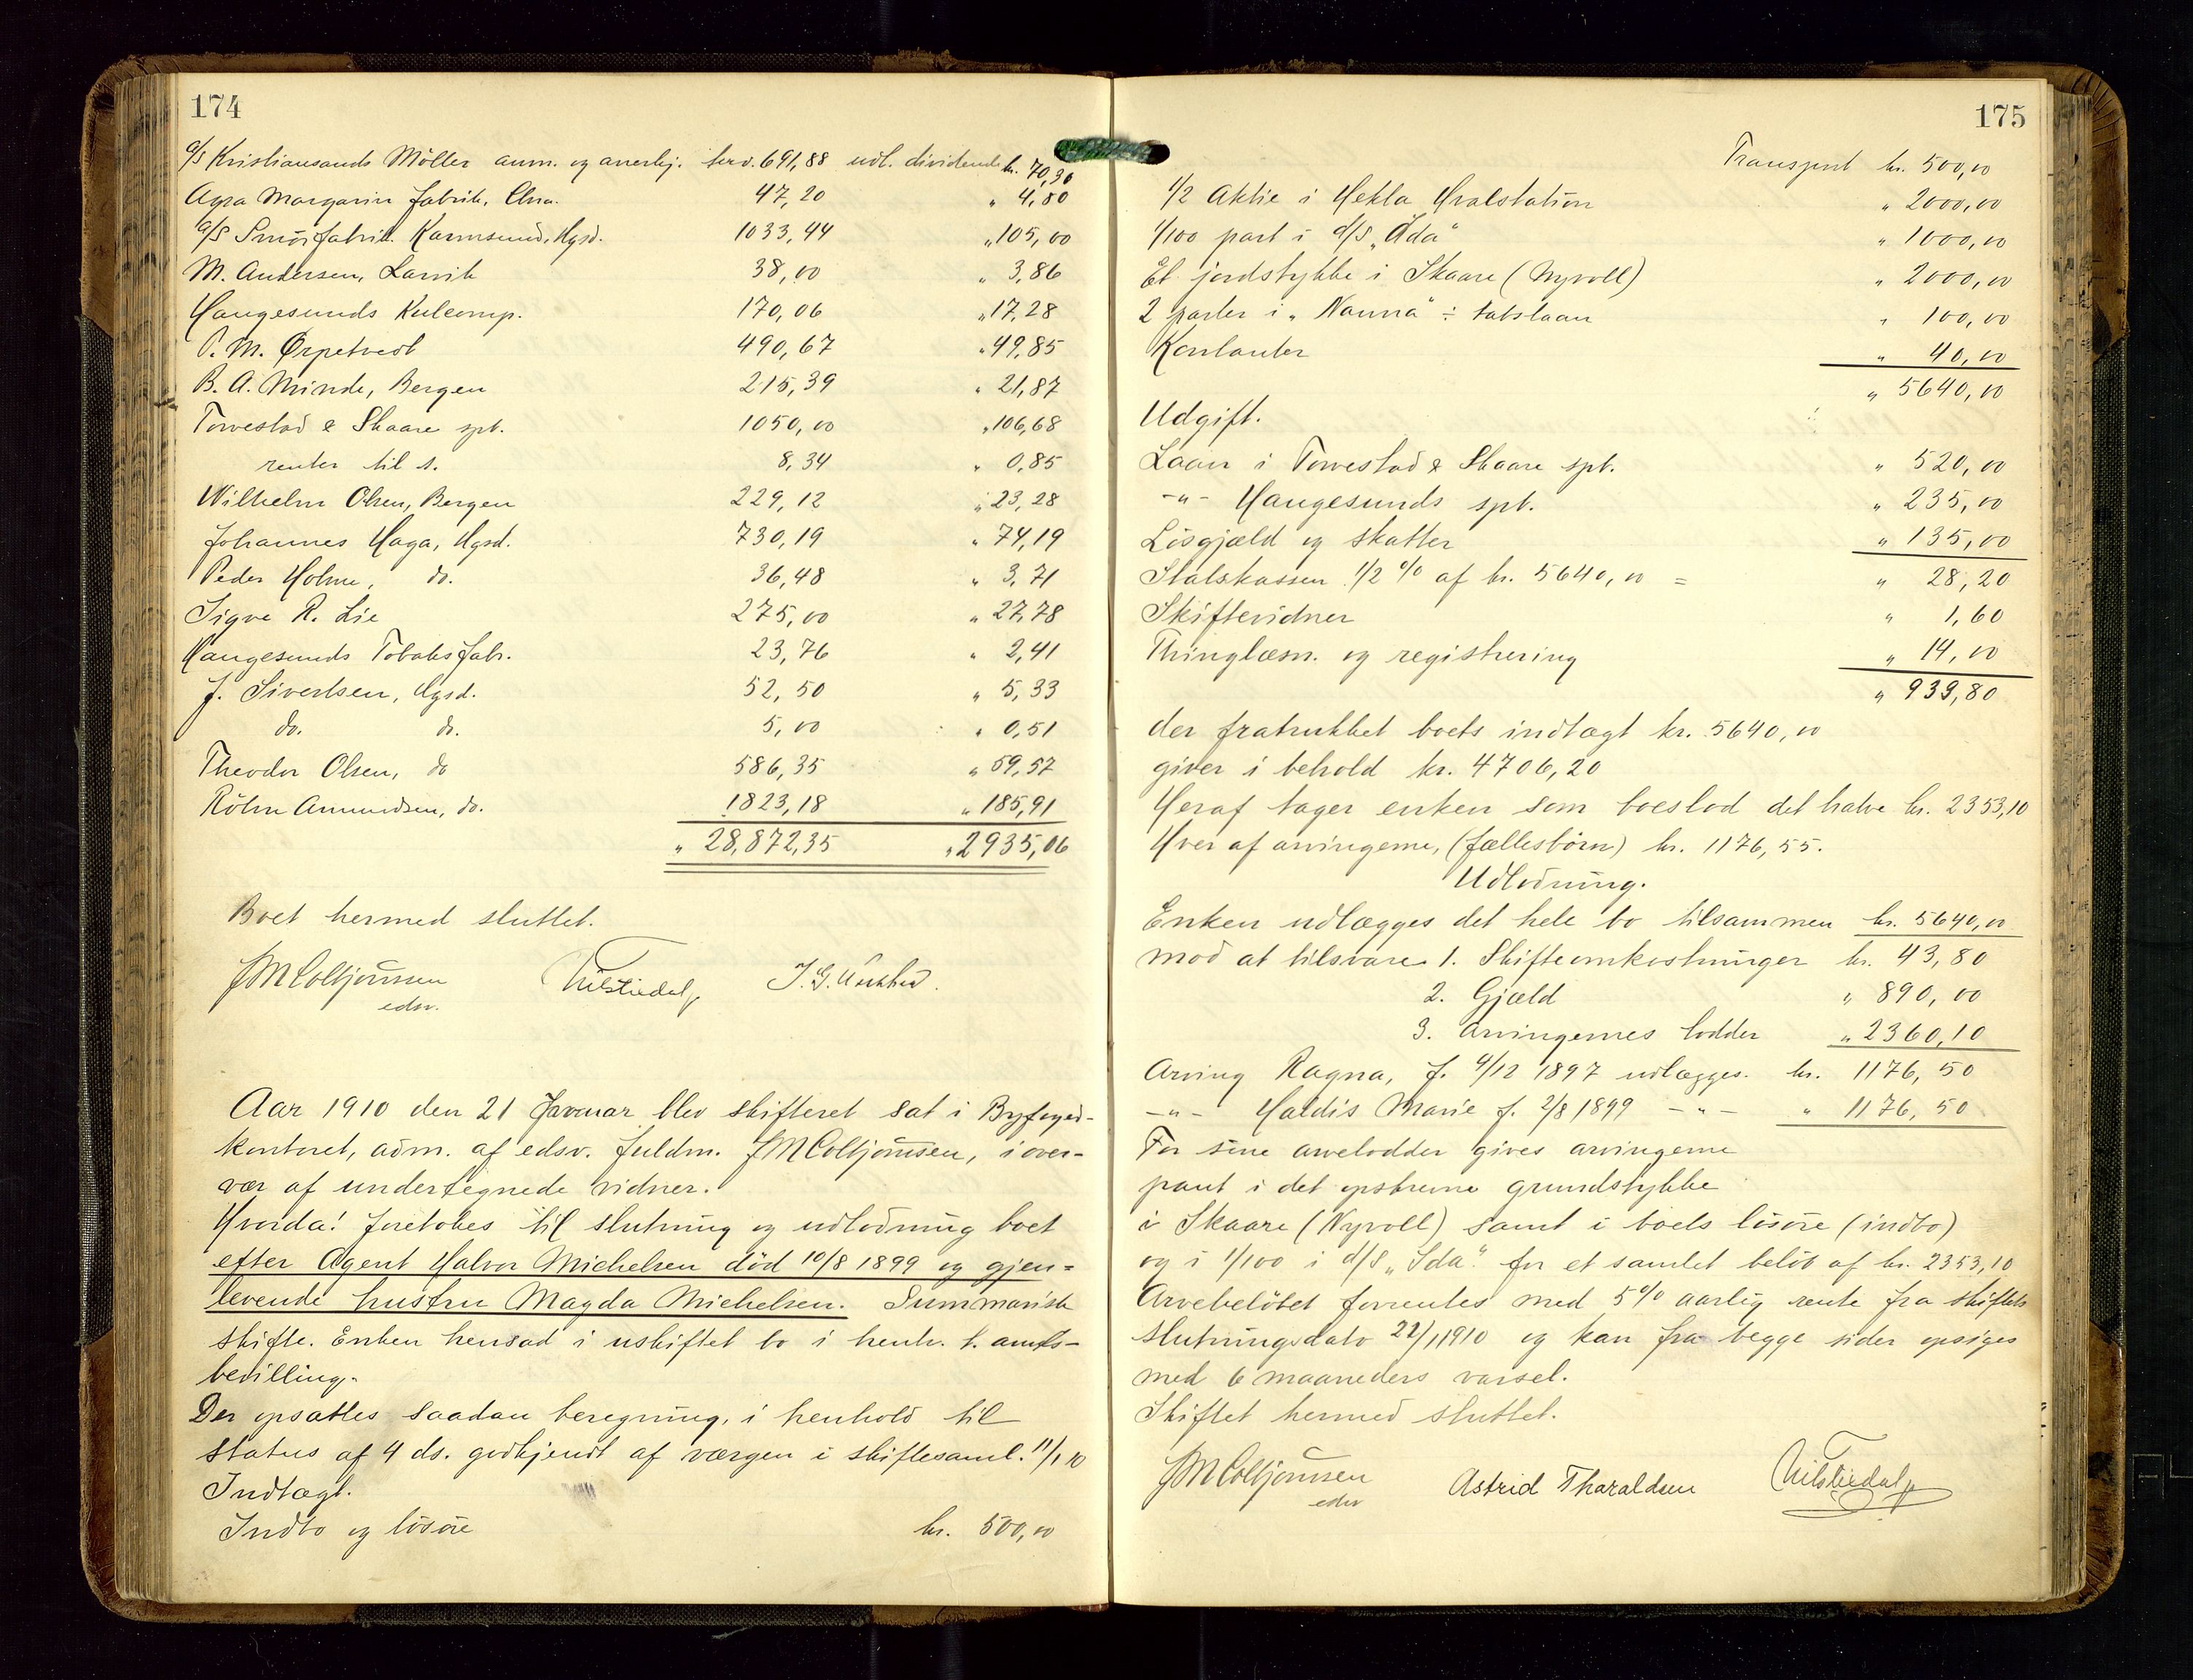 174
A/S Kristiansands Möller anm. og anerkj. krv. 691,88 udl. dividende kr. 70,30
Agra Margarin fabrik, Chra. 47,20 " 4,80
A/S Smörfabrik Karmsund, Hgsd. 1033,44 " 105,00
M. Andersen, Larvik 38,00 " 3,86
Haugesunds Kulcomp. 170,06 " 17,28
P. M. Ørpetvedt 490,67 " 49,85
B. A. Minde, Bergen 215,39 " 21,87
Torvestad & Skaare spb. 1050,00 " 106,68
renter til s. 8,34 " 0,85
Wilhelm Olsen, Bergen 229,12 " 23,28
Johannes Haga, Hgsd. 730,19 " 74,19
Peder Holme, do. 36,48 " 3,71
Sigve R. Lie 275,00 " 27,78
Haugesunds Tobaksfabr. 23,76 " 2,41
J. Sivertsen, Hgsd. 52,50 " 5,33
do. do. 5,00 " 0,51
Theodor Olsen, do 586,35 " 59,57
Amundsen, do. 1823,18 " 185,91
" 28,872,35 " 2935,06
Boet hermed sluttet.
JM Colbjørnsen
edsv.
Aar 1910 den 21 Januar blev skifteret sat i Byfoged-
kontoret, adm. af edsv. fuldm. JM Colbjørnsen, i over-
vær af undertegnede vidner.
Hvorda! foretokes til slutning og udlodning boet
efter Agent Halvor Michelsen död 10/8 1899 og gjen-
levende hustru Magda Michelsen. Summarisk
skifte. Enken hensad i uskiftet bo i henh. t. amts-
bevilling.
Der opsattes saadan beregning, i henhold til
status af 4 ds. godkjendt af værgen i skiftesaml. 11/1 10
Indtægt.
Indbo og lösöre kr. 500,00
175
Transport kr. 500,00
1/2 Aktie i Hekla Hvalstation " 2000,00
1/100 part i d/s "Ida" " 1000,00
Et jordstykke i Skaare (Nyvoll) " 2000,00
2 parter i "Nanna" ÷ tabslaan " 100,00
Kontanter " 40,00
" 5640,00
Udgift.
Laan i Torvestad & Skaare spb. " 520,00
-"- Haugesunds spb. " 235,00
Lösgjæld og skatter " 135,00
Statskassen 1/2 % af kr. 5640,00 = " 28,20
Skiftevidner " 1,60
Thinglæsn. og registrering " 14,00
" 933,80
der fratrukket boets indtægt kr. 5640,00
giver i behold kr. 4706,20
Heraf tager enken som boeslod det halve kr. 2353,10
Hver af arvingerne, (fællesbörn) kr. 1176,55.
Udlodning.
Enken udlægges det hele bo tilsammen kr. 5640,00
mod at tilsvare 1. Skifteomkostninger kr. 43,80
2. Gjæld " 890,00
3. Arvingernes lodder " 2360,10
Arving Ragna, f. 4/12 1897 udlægges. kr. 1176,50
-"- Haldis Marie f. 2/8 1899 -"- " 1176,50
For sine arvelodder gives arvingerne
pant i det opskrevne grundstykke
i Skaare (Nyvoll) samt i boets lösöre (indbo)
og i 1/100 i d/s "Ida" for et samlet belöb af kr. 2353,10
Arvebelöbet forrentes med 5% aarlig rente fra skiftets
slutningsdato 21/1 1910 og kan fra begge sider opsiges
med 6 maaneders varsel.
Skiftet hermed sluttet.
JM Colbjørnsen Astrid Tharaldsen
edsv